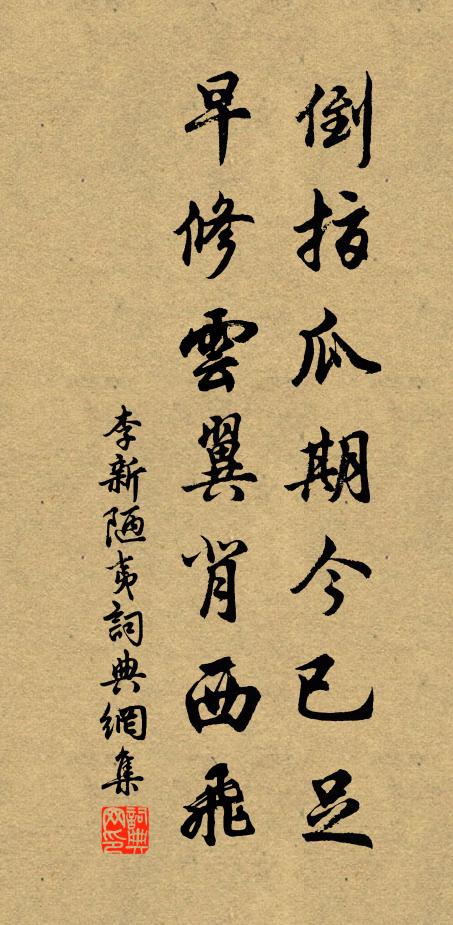 倒指瓜期今已足
早修雲翼背西飛
李新陋夷詞典網集
詞典網印